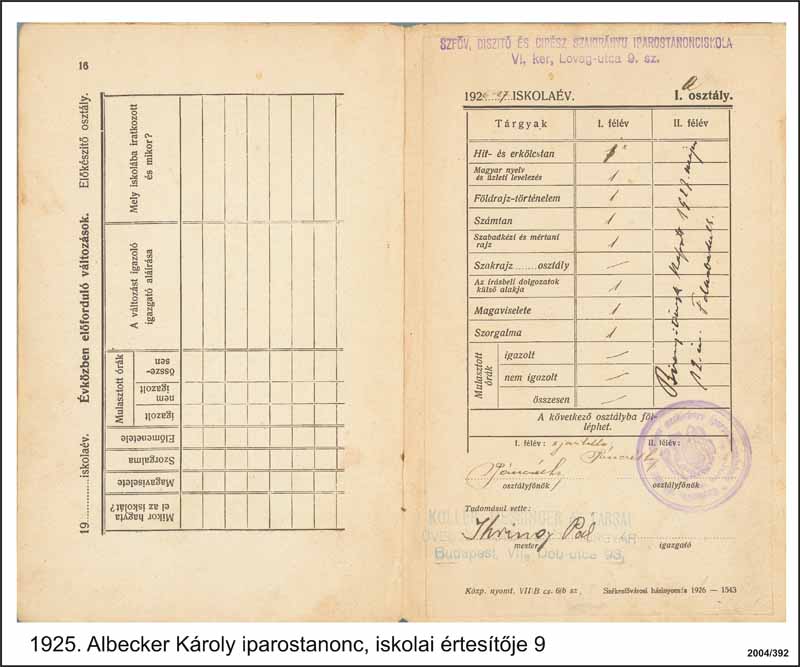 16
19........iskolaév. Évközben előforduló változások. Előkészítő osztály.
Mikor hagyta el az iskolát?
Magaviselete
Szorgalma
Előmenetele
Mulasztott órák
igazolt
nem igazolt
össze-sen
A változást igazoló igazgató aláírása
Mely iskolába iratkozott és mikor?
SZFŐV. DISZITŐ ÉS CIPÉSZ SZAKIRÁNYU IPAROSTANONCISKOLA
VI. ker, Lovag-utca 9. sz.
1926-27 ISKOLAÉV. I. a osztály.
Tárgyak I. félév II. félév
Hit- és erkölcstan 1
Magyar nyelv és üzleti levelezés 1
Földrajz-történelem 1
Számtan 1
Szabadkézi és mértani rajz 1
Szakrajz........osztály —
Az írásbeli dolgozatok külső alakja 1
Magaviselete 1
Szorgalma 1
Mulasztott órák
igazolt —
nem igazolt —
összesen —
Bizonyítványt kapott 1927. május
12-én.
A következő osztályba föl-
léphet.
I. félév: II. félév:
osztályfőnök osztályfőnök
Tudomásul vette:
TÁRSAI
Ihring Pál
mester igazgató
Budapest, VII., Dob-utca 93.
Közp. nyomt. VII B cs. 6/b sz Székesfővárosi házinyomda 1926 — 1543
1925. Albecker Károly iparostanonc, iskolai értesítője 9
2004/392